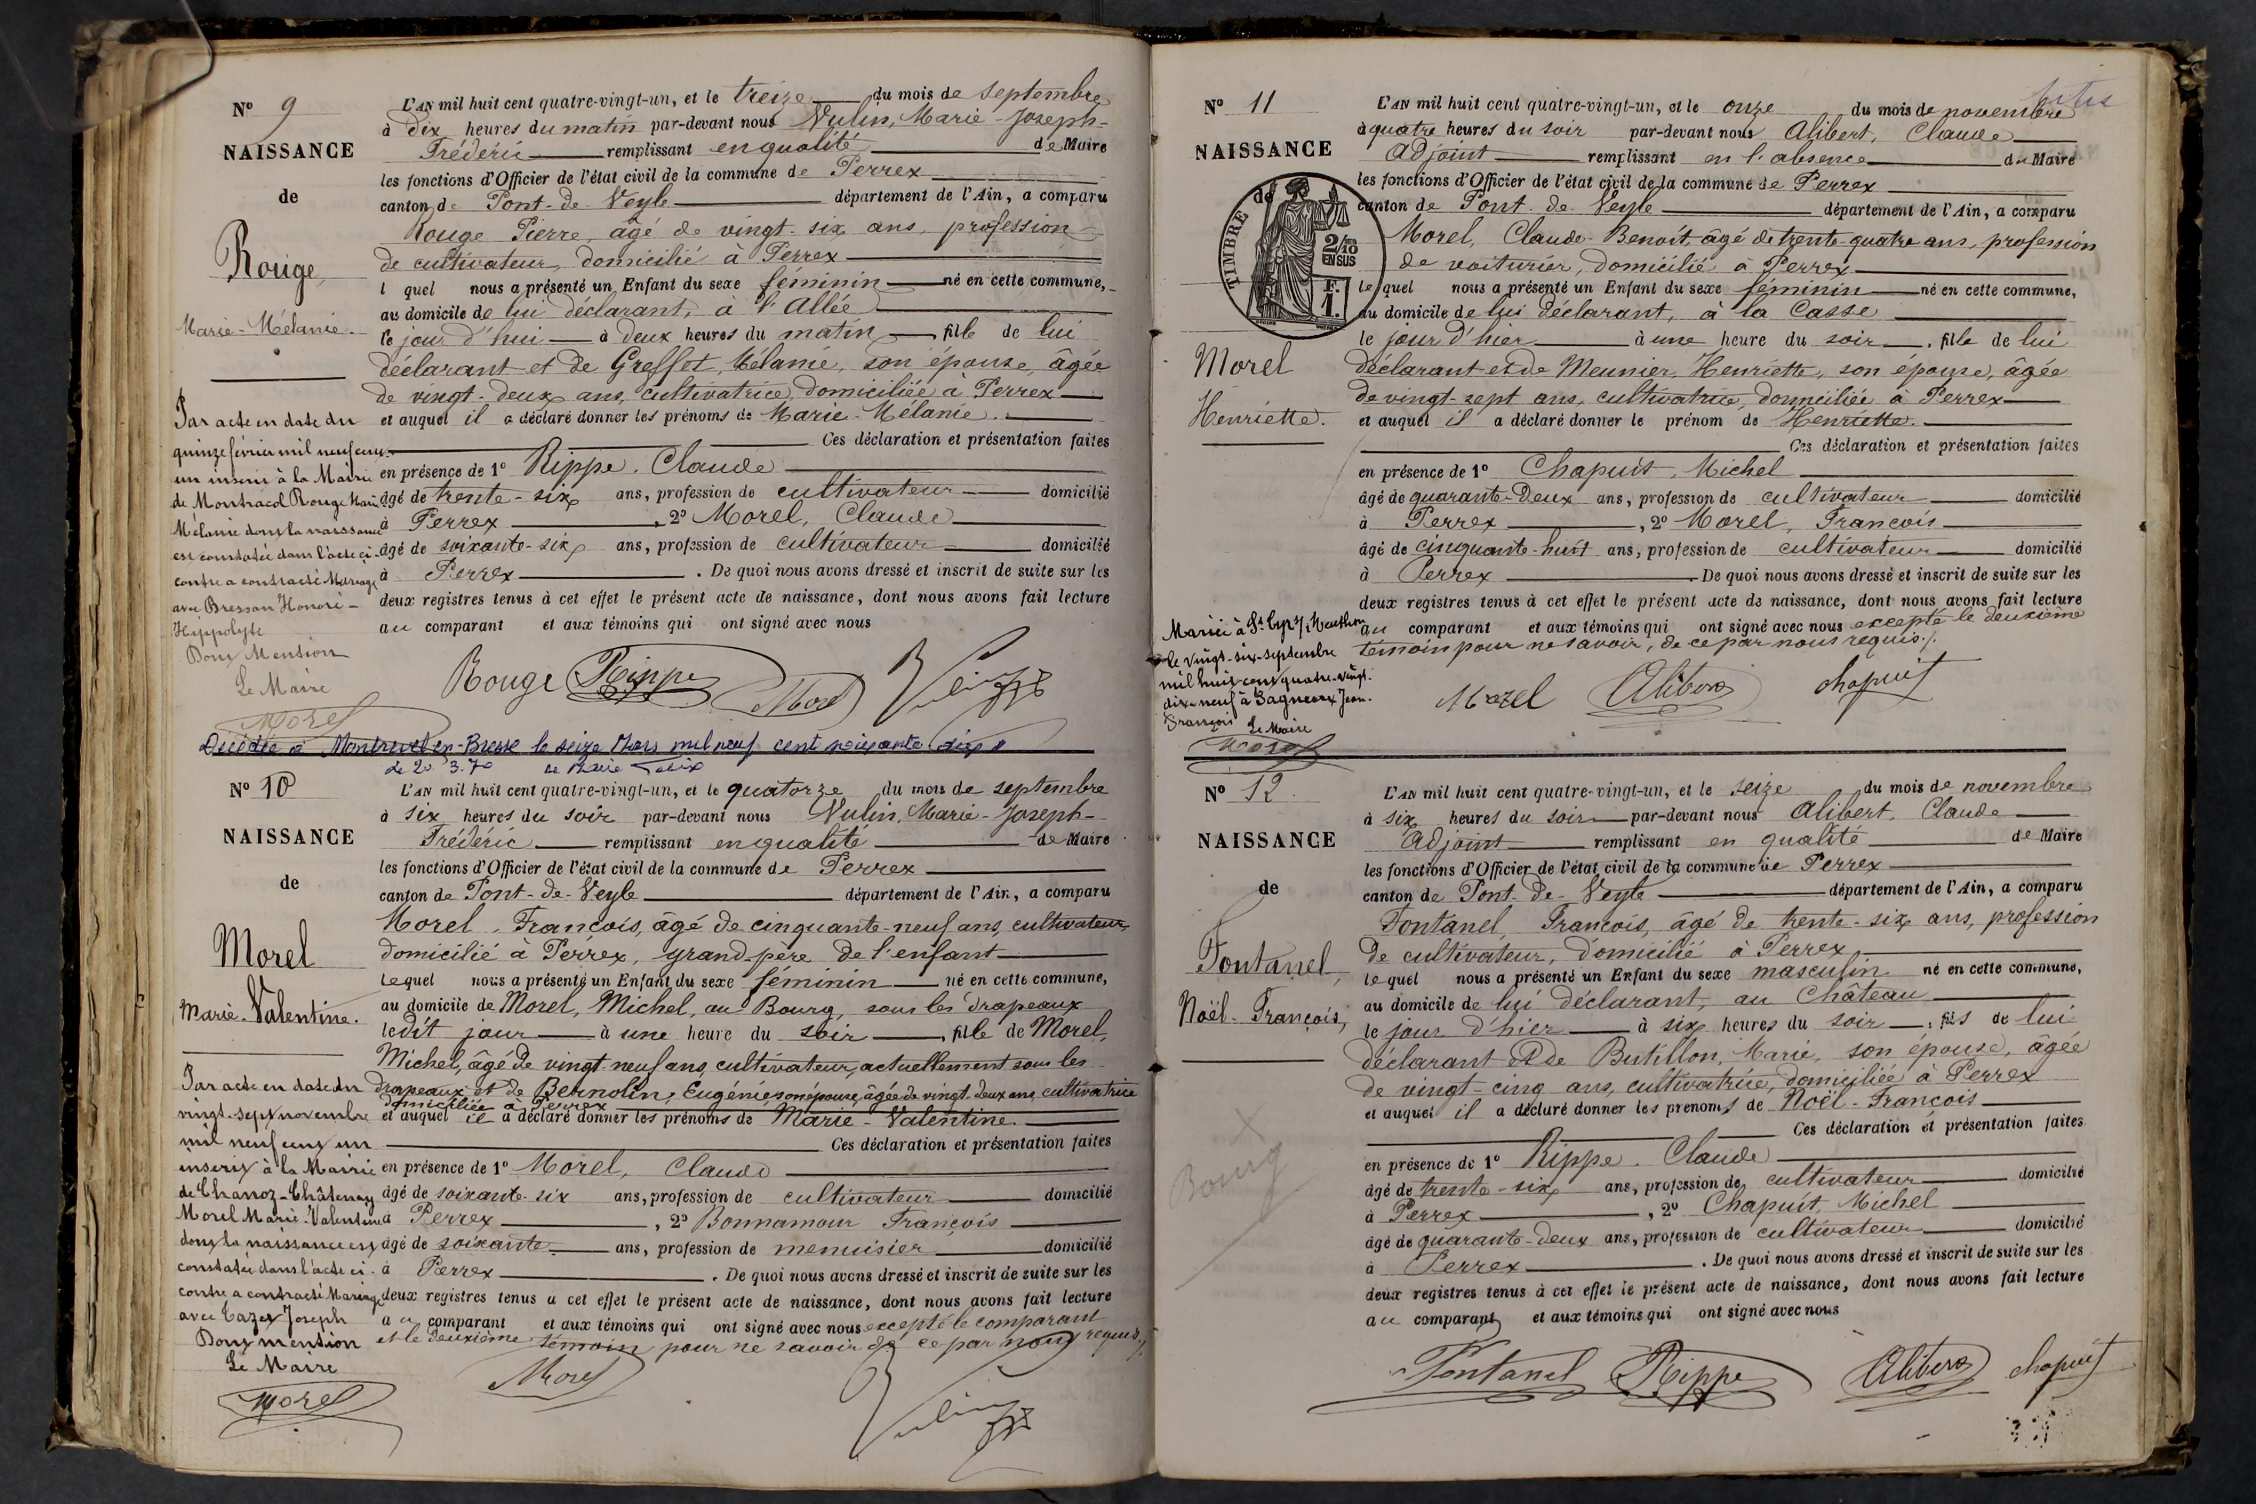 Nº 9
NAISSANCE
de
Rouge,
Marie-Mélanie.
L'AN mil huit cent quatre-vingt-un, et le treize du mois de septembre
à dix heures du matin par-devant nous Vulin, Marie-Joseph-
Frédéric remplissant en qualité de Maire
les fonctions d'Officier de l'état civil de la commune de Perrex
canton de Pont-de-Veyle département de l'Ain, a comparu
Rouge Pierre, âgé de vingt-six ans, profession
de cultivateur, domicilié à Perrex
l quel nous a présenté un Enfant du sexe féminin né en cette commune,
au domicile de lui déclarant, à l'Allée
le jour d'hui à deux heures du matin fille de lui
déclarant et de Greffet, Mélanie, son épouse, âgée
de vingt-deux ans, cultivatrice, domiciliée à Perrex
et auquel il a déclaré donner les prénoms de Marie-Mélanie.
Ces déclaration et présentation faites
en présence de 1º Rippe, Claude
âgé de trente-six ans, profession de cultivateur domicilié
à Perrex, 2º Morel, Claude
âgé de soixante-six ans, profession de cultivateur domicilié
à Perrex. De quoi nous avons dressé et inscrit de suite sur les
deux registres tenus à cet effet le présent acte de naissance, dont nous avons fait lecture
au comparant et aux témoins qui ont signé avec nous
Rouge Rippe Morel Vulin
Par acte en date du
quinze février mil neuf cent
un inscrit à la Mairie
de Montracol Rouge Marie
Mélanie dont la naissance
est constatée dans l'acte ci-
contre a contracté Mariage
avec Bresson Honoré-
Hippolyte
Dont Mention
Le Maire
Morel
Décédée à Montrevel-en-Bresse le seize Mars mil neuf cent soixante dix
Le 20.3.70 Le Maire
Nº 10
NAISSANCE
de
Morel
Marie-Valentine.
L'AN mil huit cent quatre-vingt-un, et le quatorze du mois de septembre
à six heures du soir par-devant nous Vulin, Marie-Joseph-
Frédéric remplissant en qualité de Maire
les fonctions d'Officier de l'état civil de la commune de Perrex
canton de Pont-de-Veyle département de l'Ain, a comparu
Morel, François, âgé de cinquante-neuf ans, cultivateur,
domicilié à Perrex, grand-père de l'enfant
lequel nous a présenté un Enfant du sexe féminin né en cette commune,
au domicile de Morel, Michel, au Bourg, sous les drapeaux
ledit jour à une heure du soir, fille de Morel,
Michel, âgé de vingt-neuf ans, cultivateur, actuellement sous les
drapeaux et de Bernolin, Eugénie son épouse, âgée de vingt-deux ans, cultivatrice
domiciliée à Perrex
et auquel il a déclaré donner les prénoms de Marie-Valentine.
Ces déclaration et présentation faites
en présence de 1º Morel, Claude
âgé de soixante-six ans, profession de cultivateur domicilié
à Perrex, 2º Bonnamour François
âgé de soixante ans, profession de menuisier domicilié
à Perrex. De quoi nous avons dressé et inscrit de suite sur les
deux registres tenus à cet effet le présent acte de naissance, dont nous avons fait lecture
au comparant et aux témoins qui ont signé avec nous excepté le comparant
et le deuxième témoin pour ne savoir de ce par nous requis./.
Morel Vulin
Par acte en date du
vingt-sept novembre
mil neuf cent un
inscrit à la Mairie
de Chanoz-Châtenay
Morel Marie-Valentine
dont la naissance est
constatée dans l'acte ci-
contre a contracté Mariage
avec Cazet Joseph
Dont mention
Le Maire
Morel
Nº 11
NAISSANCE
de
TIMBRE
2/10
EN SUS
F.
1.
Morel
Henriette.
L'AN mil huit cent quatre-vingt-un, et le onze du mois de novembre
à quatre heures du soir par-devant nous Alibert, Claude
Adjoint remplissant en l'absence du Maire
les fonctions d'Officier de l'état civil de la commune de Perrex
canton de Pont-de-Veyle département de l'Ain, a comparu
Morel, Claude-Benoît, âgé de trente-quatre ans, profession
de voiturier, domicilié à Perrex
lequel nous a présenté un Enfant du sexe féminin né en cette commune,
au domicile de lui déclarant, à la Casse
le jour d'hier à une heure du soir, fille de lui
déclarant et de Meunier, Henriette, son épouse, âgée
de vingt-sept ans, cultivatrice, domiciliée à Perrex
et auquel il a déclaré donner le prénom de Henriette.
Ces déclaration et présentation faites
en présence de 1º Chapuit, Michel
âgé de quarante-deux ans, profession de cultivateur domicilié
à Perrex, 2º Morel, François
âgé de cinquante-huit ans, profession de cultivateur domicilié
à Perrex. De quoi nous avons dressé et inscrit de suite sur les
deux registres tenus à cet effet le présent acte de naissance, dont nous avons fait lecture
au comparant et aux témoins qui ont signé avec nous excepté le deuxième
témoin pour ne savoir, de ce par nous requis./.
Morel Alibert chapuit
Mariée à St Cyr s/ Menthon
le vingt-six-septembre
mil huit cent quatre-vingt-
dix-neuf à Bagneaux Jean-
François
Le Maire
Morel
Nº 12
NAISSANCE
de
Fontanel,
Noël-François,
Bourg
L'AN mil huit cent quatre-vingt-un, et le seize du mois de novembre
à six heures du soir par-devant nous Alibert, Claude
Adjoint remplissant en qualité de Maire
les fonctions d'Officier de l'état civil de la commune de Perrex
canton de Pont-de-Veyle département de l'Ain, a comparu
Fontanel, François, âgé de trente-six ans, profession
de cultivateur, domicilié à Perrex
lequel nous a présenté un Enfant du sexe masculin né en cette commune,
au domicile de lui déclarant, au Château
le jour d'hier à six heures du soir, fils de lui
déclarant et de Butillon, Marie, son épouse, âgée
de vingt-cinq ans, cultivatrice, domiciliée à Perrex
et auquel il a déclaré donner les prénoms de Noël-François
Ces déclaration et présentation faites
en présence de 1º Rippe, Claude
âgé de trente-six ans, profession de cultivateur domicilié
à Perrex, 2º Chapuit, Michel
âgé de quarante-deux ans, profession de cultivateur domicilié
à Perrex. De quoi nous avons dressé et inscrit de suite sur les
deux registres tenus à cet effet le présent acte de naissance, dont nous avons fait lecture
au comparant et aux témoins qui ont signé avec nous
Fontanel Rippe Alibert chapuit